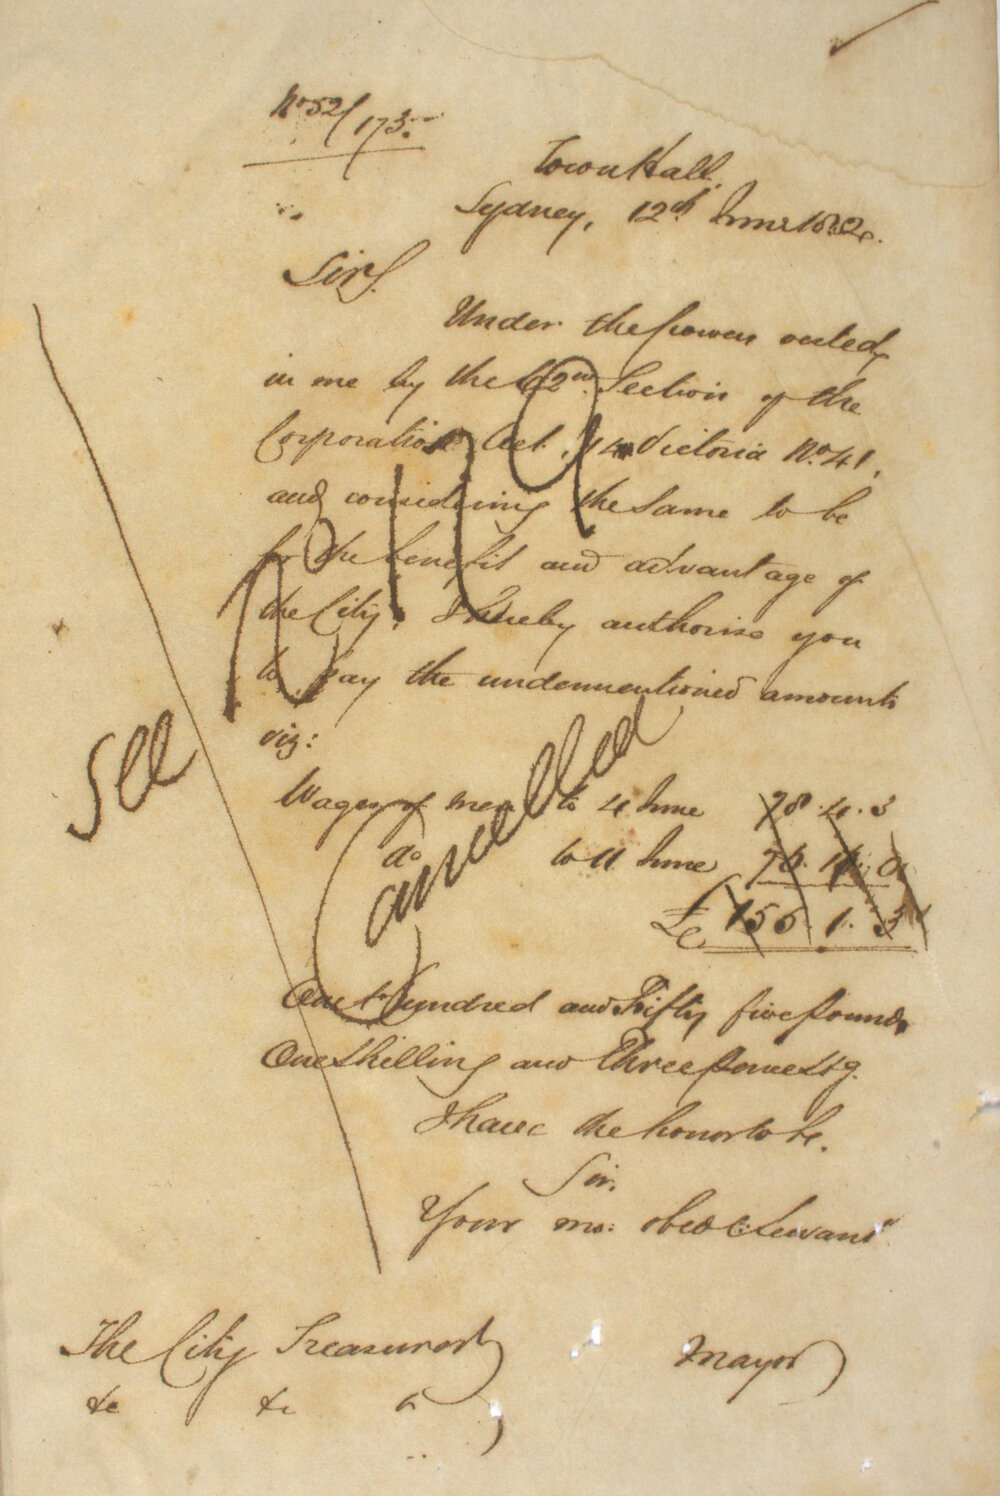 No 52/173.
Town Hall.
Sydney, 12th June 1852.
Sir,
Under the powers vested
in me by the 62nd Section of the
Corporation Act, 14 Victoria No. 41,
and considering the same to be
for the benefit and advantage of
the City, I hereby authorise you
to pay the undermentioned amounts
viz:
See
Cancelled
Wages of men to 4 June 78. 4. 3
do to 11 June 76. 17. 0
£ 155. 1. 3
One Hundred and Fifty five pounds
One Shilling and Three pence Stg.
I have the honor to be.
Sir.
Your mo: obedt. Servant
The City Treasurer Mayor
&c &c &